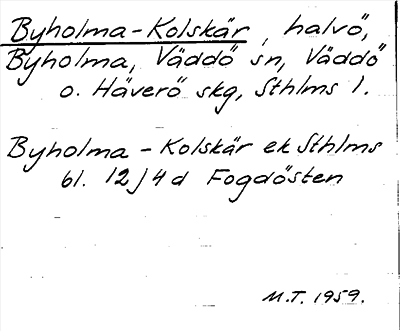 Byholma-Kolskär, halvö,
Byholma, Väddö sn, Väddö
o. Häverö skg, Sthlms l.
Byholma - Kolskär ek Sthlms
bl. 12 J 4 d Fogdösten
M.T. 1959.